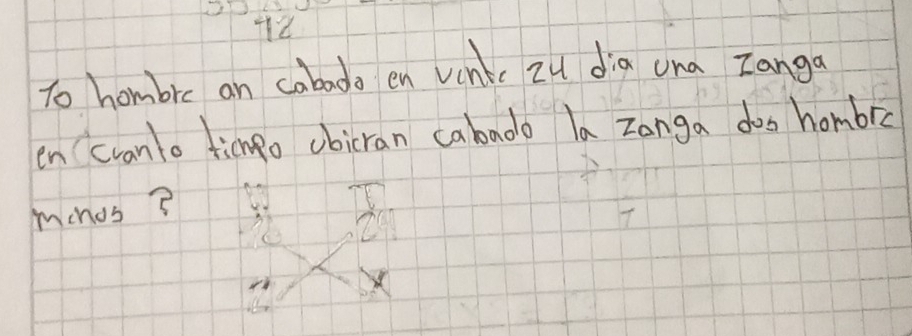 42
10 hombre an cabado en vinte 24 dia una zanga
en cuanto tiempo ubieran cabado la zanga dos hombre
menos ?
H T
10 24
2 x